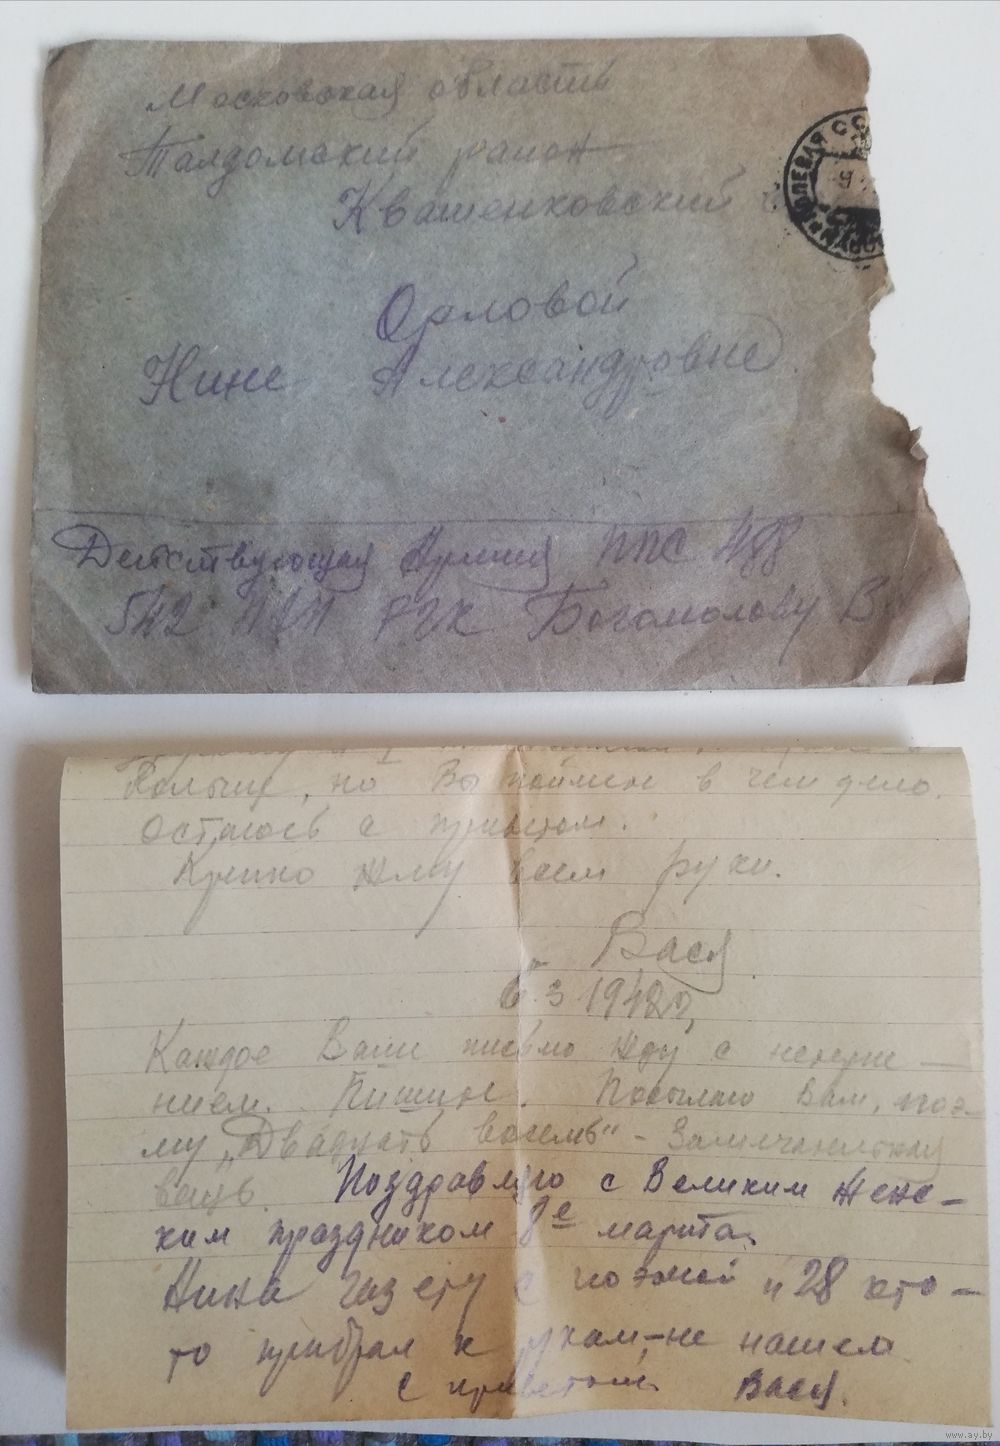 Московская область
Талдомский район
Квашенковский с
ПОЛЕВАЯ
Орловой
Нине Александровне
Действующая Армия ППС 488
542 Богомолову В
Польше, но Вы поймете в чем дело.
Остаюсь с приветом.
Крепко жму всем руки.
Вася
6.3.1942г.
Каждое Ваше письмо жду с нетерпе-
нием. Пишите. Посылаю Вам, поэ-
му „Двадцать восемь“ - Замечательная
вещь. Поздравляю с Великим Женс-
ким праздником 8е марта.
Нина газету с поэмой „28 кто-
то прибрал к рукам, - не нашел
с приветом Вася.
www.ay.by